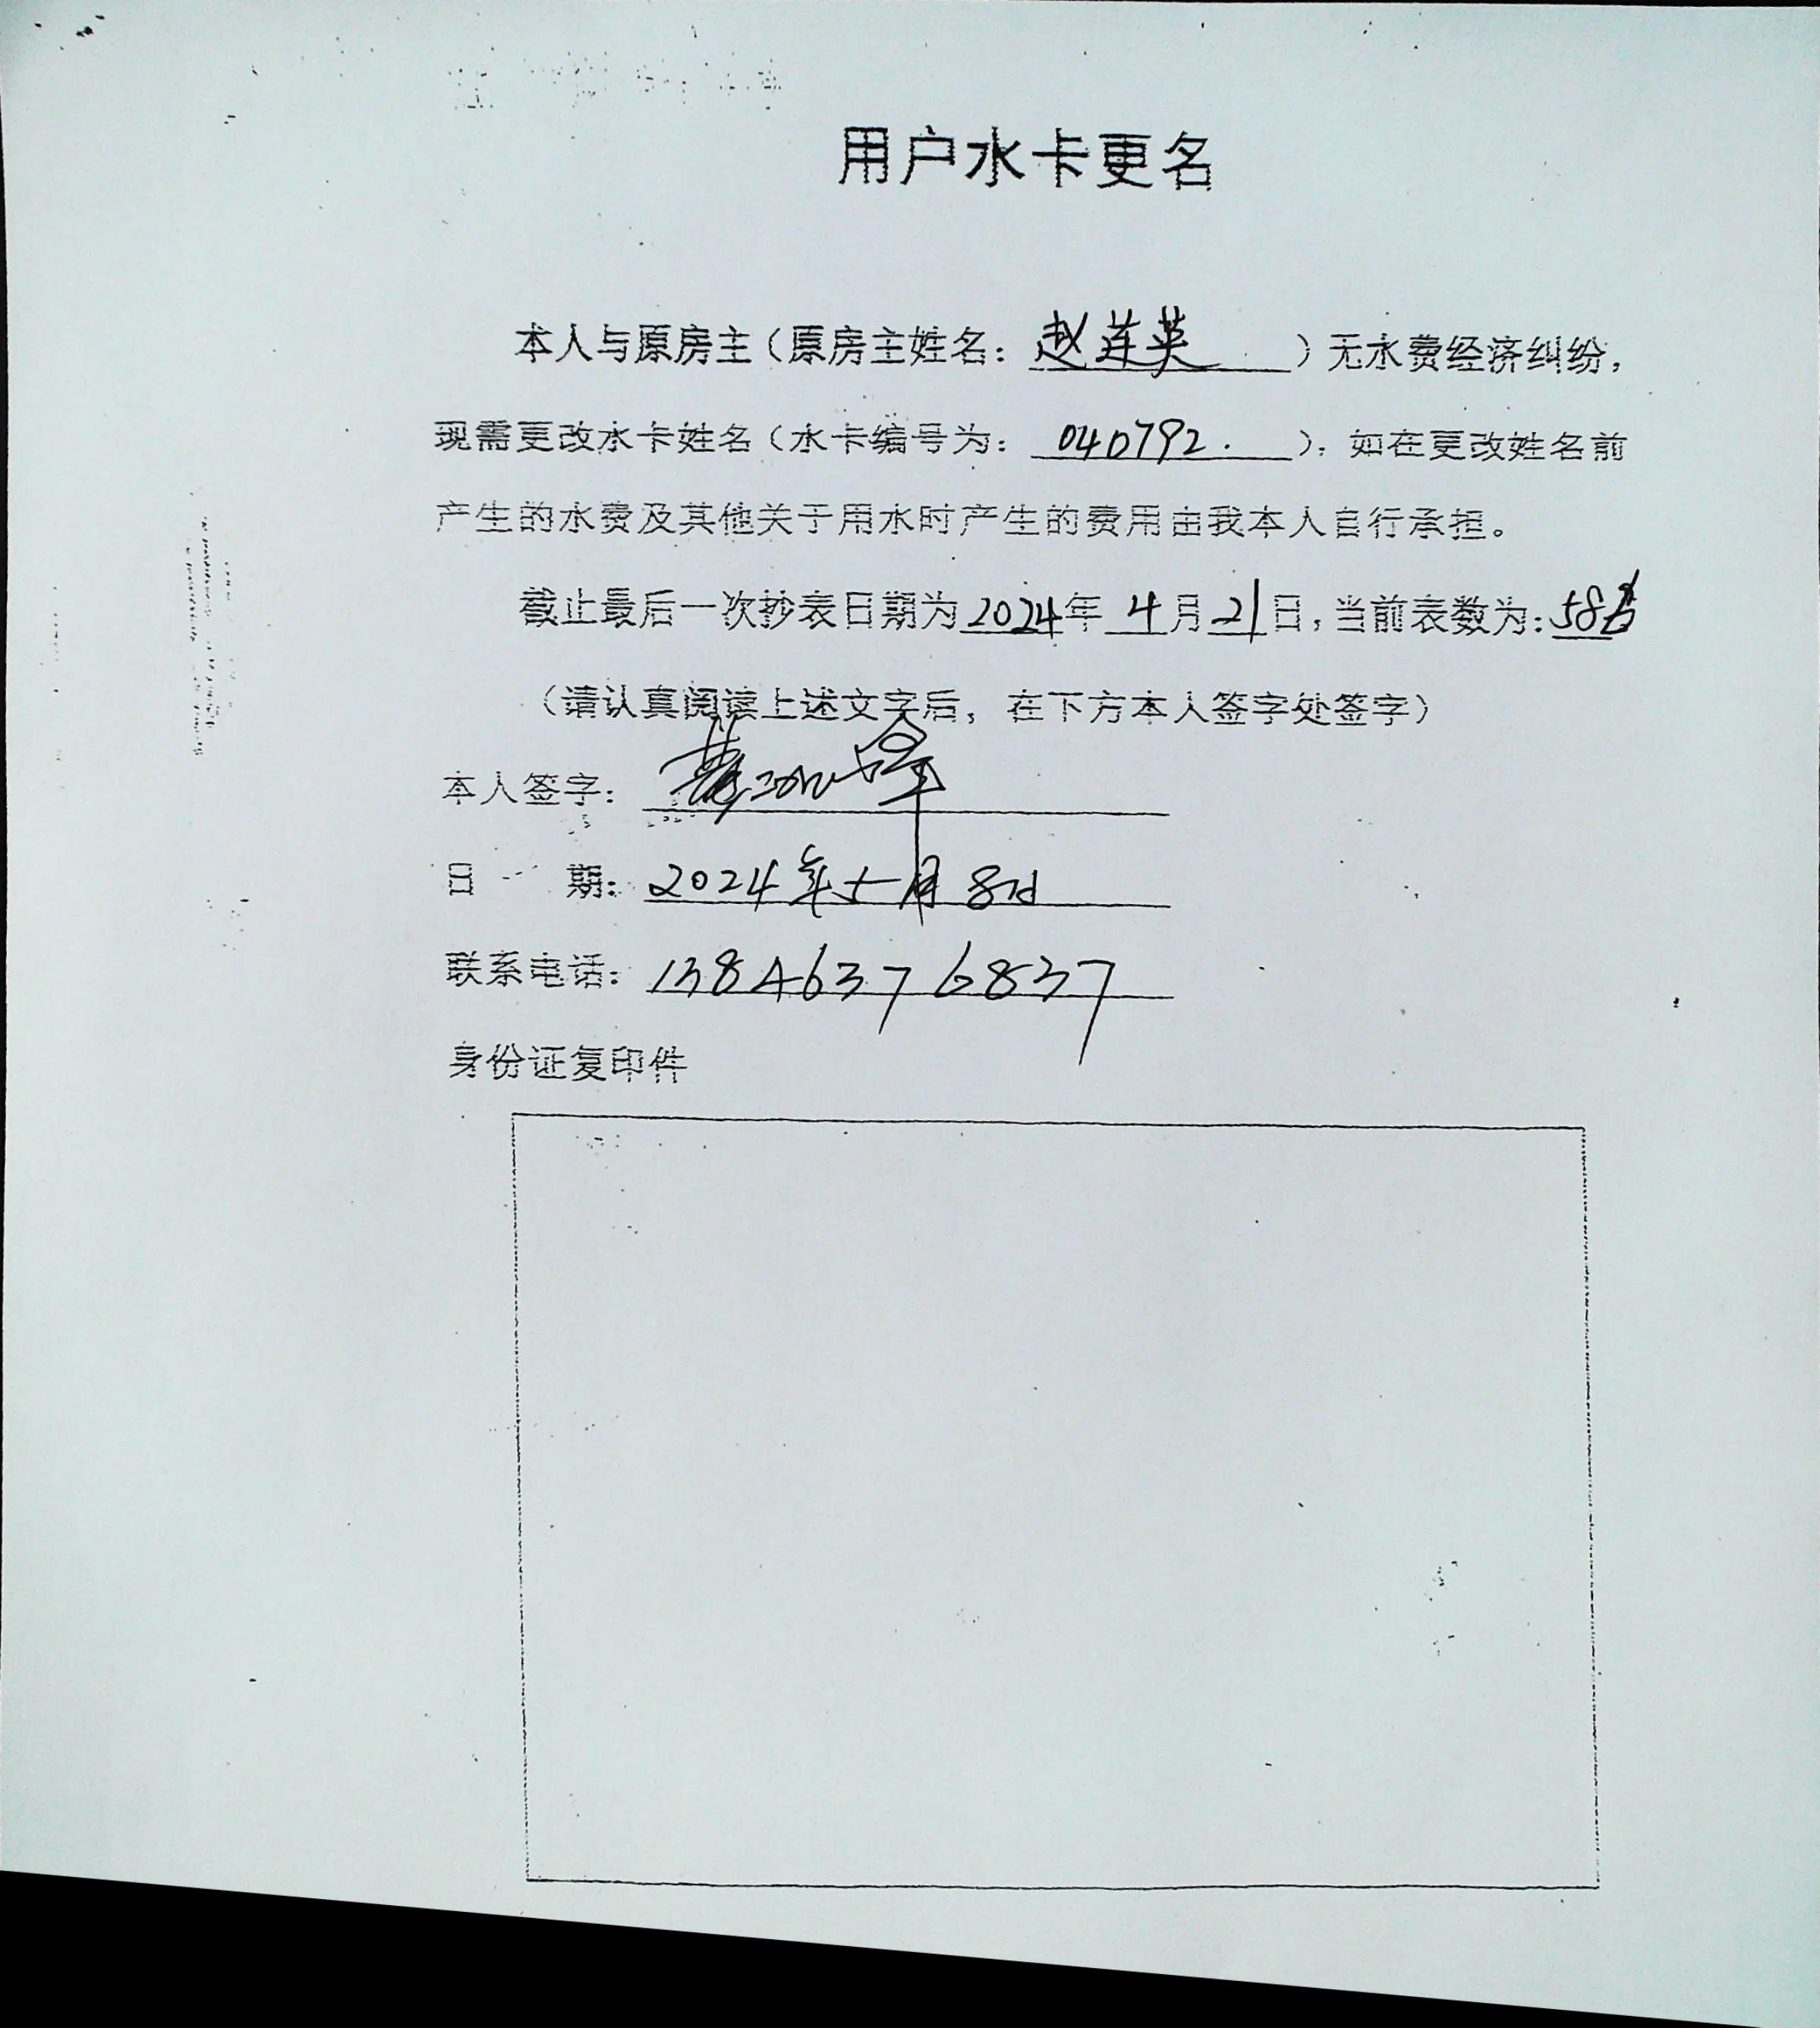 用户水卡更名
本人与原房主（原房主姓名：赵莲英）无水费经济纠纷，
现需更改水卡姓名（水卡编号为：040792.）。如在更改姓名前
产生的水费及其他关于用水时产生的费用由我本人自行承担。
截止最后一次抄表日期为2024年4月21日，当前表数为：58
（请认真阅读上述文字后，在下方本人签字处签字）
本人签字：
日期：2024年5月8日
联系电话：13846376837
身份证复印件